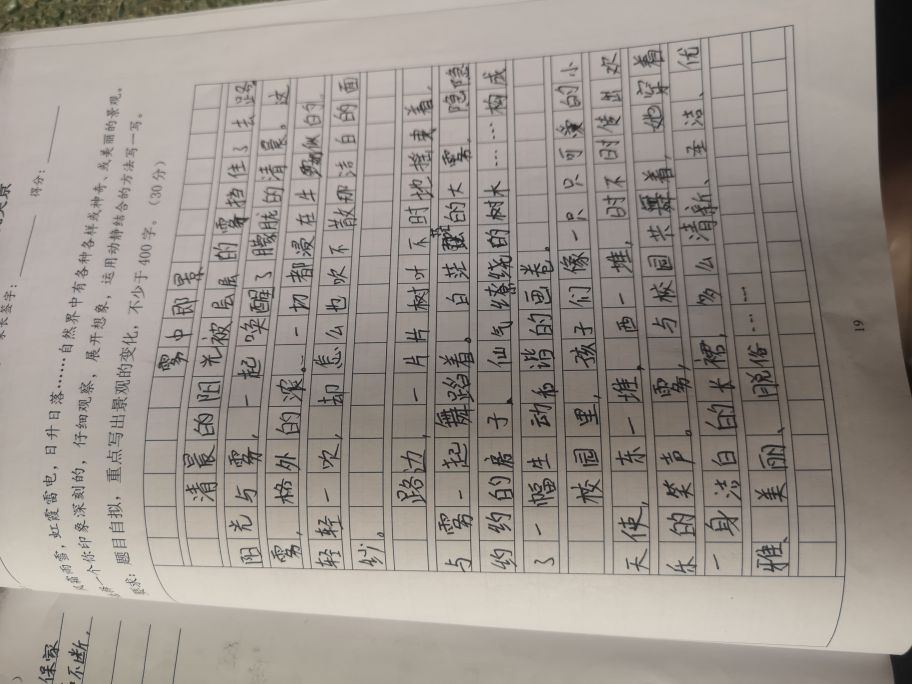 家长签字：
得分：
风霜雨雪，虹霞雷电，日升日落……自然界中有各种各样或神奇、或美丽的景观。
一个你印象深刻的，仔细观察，展开想象，运用动静结合的方法写一写。
要求：题目自拟，重点写出景观的变化，不少于400字。（30分）
雾中即景
清晨的阳光被层层的雾挡住了去路，
阳光与雾，一起唤醒了朦胧的清晨。这
雾，格外的浓。一切都浸在牛奶似的，
轻轻一吹，却怎么也吹不散那洁白的面
纱。
路边，一片片树叶不时地摇曳着，
与雾一起舞蹈着。白茫茫的大雾，隐隐
约约的房子、仙气缭绕的树木……构成
了一幅生动和谐的画卷。
校园里，孩子们像一只只可爱的小
天使，东一堆，西一堆，时不时传出欢
乐的笑声。雾，与校园共舞着，她穿着
一身洁白的长裙，多么清新、圣洁、优
雅、美丽、脱俗……
19
保家
不断，